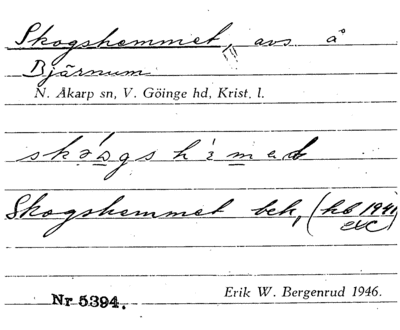 Skogshemmet, avs å
Bjärnum
N. Åkarp sn, V. Göinge hd, Krist. l.
Skogshemmet beb. (hb 1941
etc)
Nr 5394.
Erik W. Bergenrud 1946.